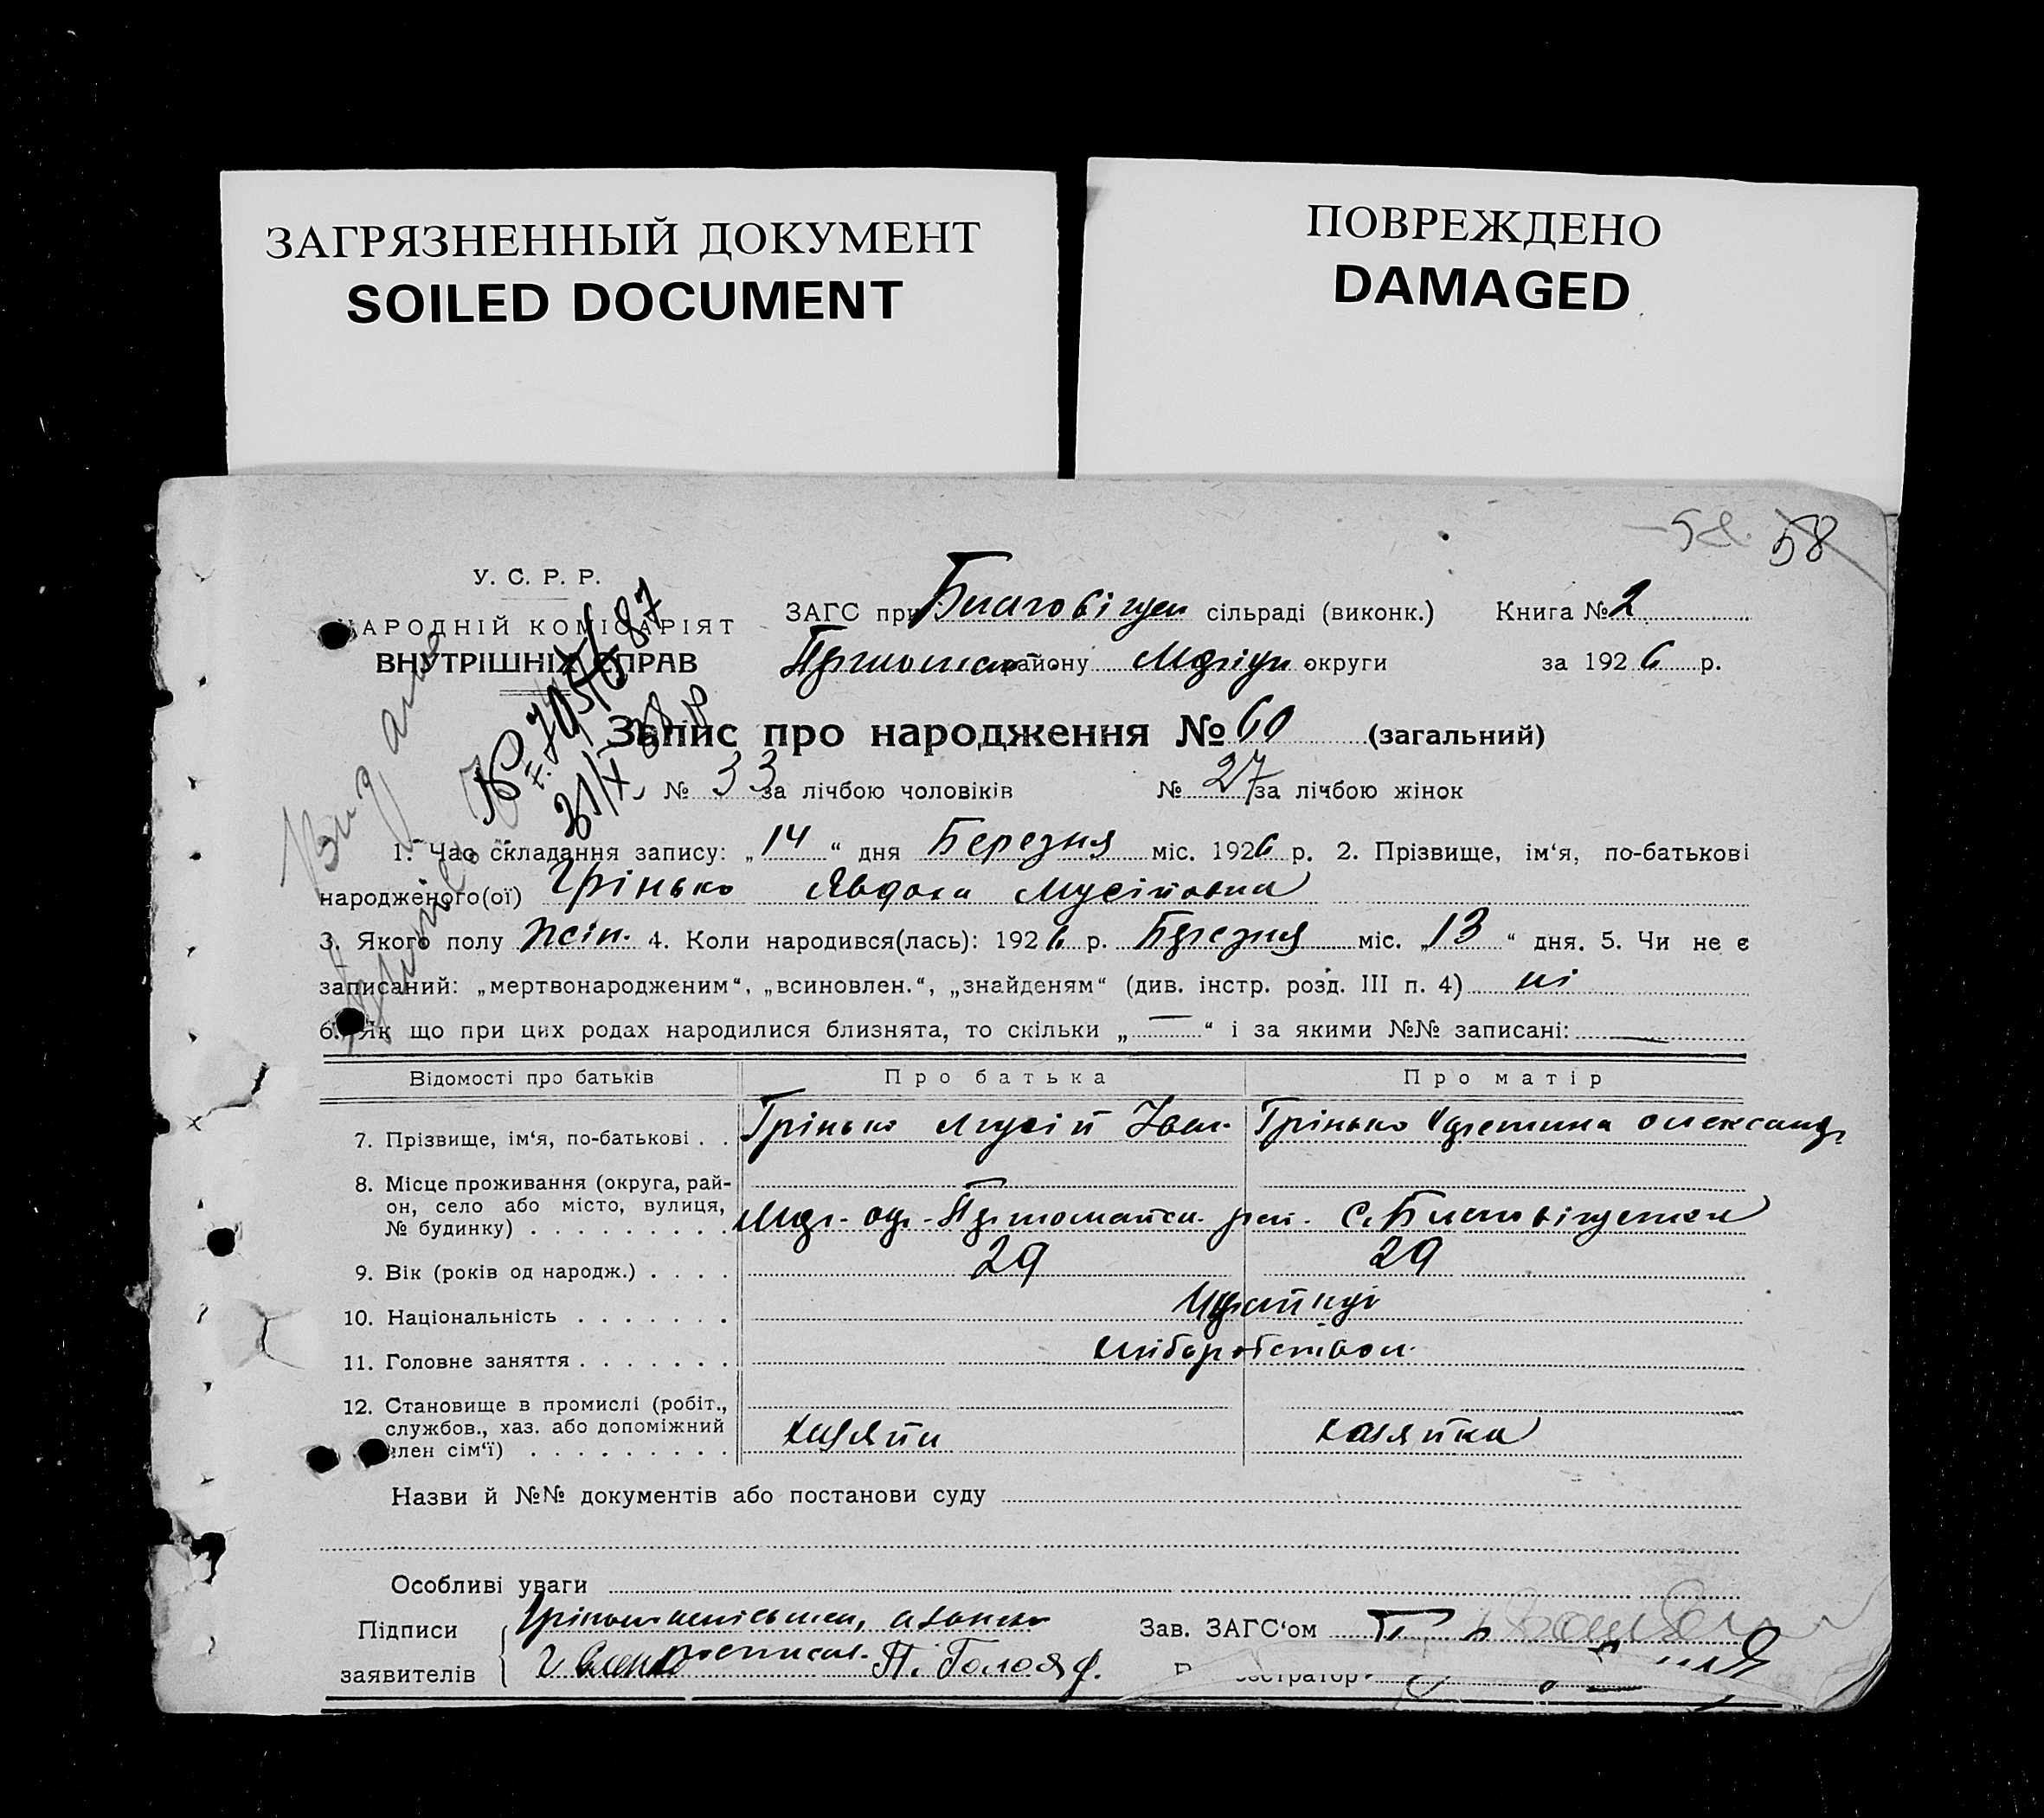 ЗАГРЯЗНЕННЫЙ ДОКУМЕНТ
SOILED DOCUMENT
ПОВРЕЖДЕНО
DAMAGED
58
У. С. Р. Р.
НАРОДНІЙ КОМІСАРІЯТ
ВНУТРІШНІХ СПРАВ
ЗАГС при Благовіщен сільраді (виконк.) Книга № 2
району округи за 1926 р.
Запис про народження № 60 (загальний)
№ 33 за лічбою чоловіків № 27 за лічбою жінок
1. Час складання запису: „14“ дня Березня міс. 1926 р. 2. Прізвище, ім‘я, по-батькові
народженого(ої) Грінько Явдоха Мусіївна
3. Якого полу жін. 4. Коли народився(лась): 1926 р. Березня міс. „13“ дня. 5. Чи не є
записаний: „мертвонародженим“, „всиновлен.“, „знайденям“ (див. інстр. розд. III п. 4) ні
6. Як що при цих родах народилися близнята, то скільки „—“ і за якими №№ записані: —
Відомості про батьків Про батька Про матір
7. Прізвище, ім‘я, по-батькові . . Грінько Мусій Іван. Грінько Олександр
8. Місце проживання (округа, рай-
он, село або місто, вулиця,
№ будинку) . . . . . . . . .
9. Вік (років од народж.) . . . . 29 29
10. Національність . . . . . . .
11. Головне заняття . . . . . . . хліборобством
12. Становище в промислі (робіт.,
службов., хаз. або допоміжний
член сім‘ї) . . . . . . . . . хазяїн хазяйка
Назви й №№ документів або постанови суду
Особливі уваги
Підписи
заявителів П. Голояд.
Зав. ЗАГС‘ом